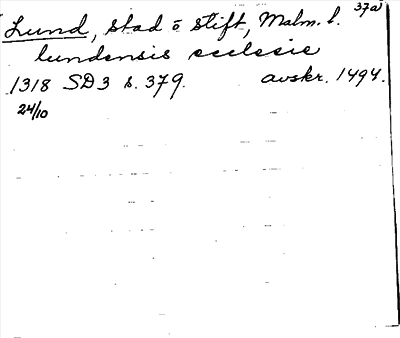 Lund, stad o stift, Malm. l. 37a)
lundensis ecclesie
1318 SD 3 s. 379. avskr. 1494.
24/10